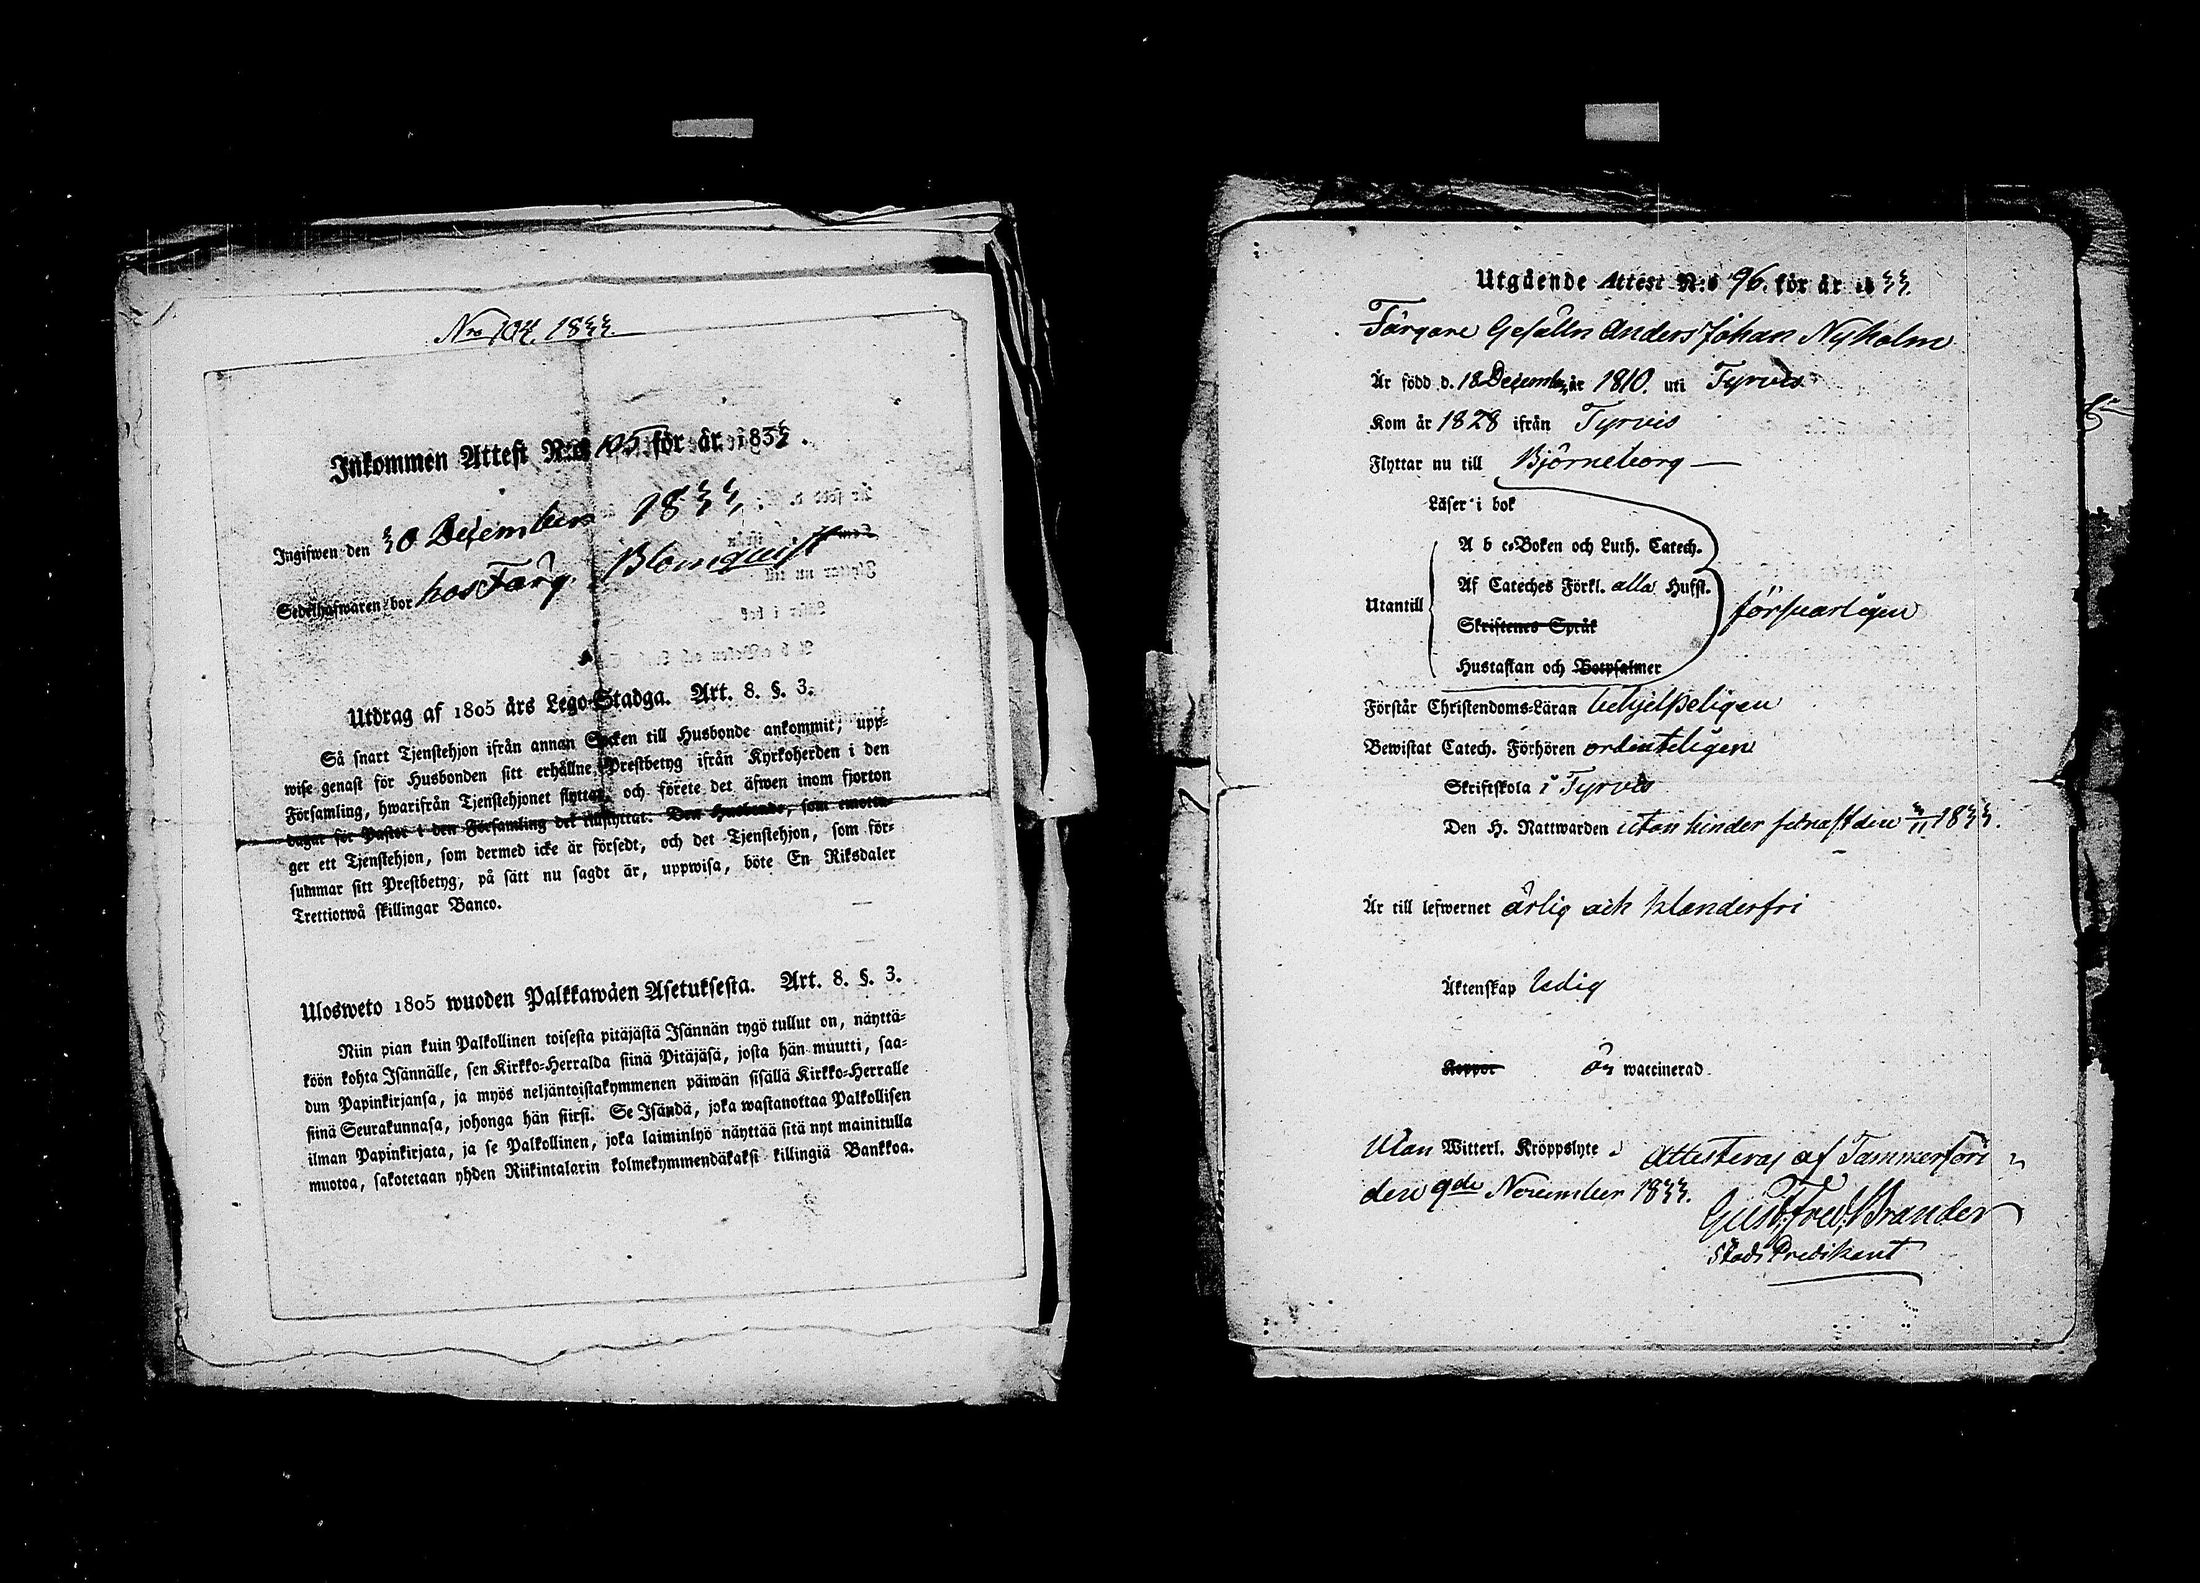 Nro 104. 1833.
Inkommen Attest N:o 105 för år 1833.
Ingifwen den 30 December 1833.
Sedelhafwaren bor hos Färg. Blomquist
Utdrag af 1805 års Lego-Stadga. Art. 8. §. 3.
Så snart Tjenstehjon ifrån annan Socken till Husbonde ankommit, upp-
wise genast för Husbonden sitt erhållne Prestbetyg ifrån Kyrkoherden i den
Församling, hwarifrån Tjenstehjonet flyttat, och förete det äfwen inom fjorton
dagar för Pastor i den Församling det tillflyttat. Den Husbonde, som emotta-
ger ett Tjenstehjon, som dermed icke är försedt, och det Tjenstehjon, som för-
summar sitt Prestbetyg, på sätt nu sagdt är, uppwisa, böte En Riksdaler
Trettiotwå skillingar Banco.
Ulosweto 1805 wuoden Palkkawäen Asetuksesta. Art. 8. §. 3.
Niin pian kuin Palkollinen toisesta pitäjästä Isännän tygö tullut on, näyttä-
köön kohta Isännälle, sen Kirkko-Herralda siinä Pitäjäsä, josta hän muutti, saa-
dun Papinkirjansa, ja myös neljäntoistakymmenen päiwän sisällä Kirkko-Herralle
siinä Seurakunnasa, johonga hän siirsi. Se Isändä, joka wastanottaa Palkollisen
ilman Papinkirjata, ja se Palkollinen, joka laiminlyö näyttää sitä nyt mainitulla
muotoa, sakotetaan yhden Riikintalarin kolmekymmendäkaksi killingiä Bankkoa.
Utgående Attest N:o 96. för år 1833.
Färgare Gesälln Anders Johan Nyholm
Är född d. 18 Decemb. år 1810. uti Tyrvis
Kom år 1828 ifrån Tyrvis
Flyttar nu till Björneborg
Läser i bok
A b c-Boken och Luth. Catech.
Af Cateches Förkl. alla Hufst.
Utantill
Skriftenes Språk
försvarligen
Hustaflan och Botpsalmer
Förstår Christendoms-Läran behjelpeligen
Bewistat Catech. Förhören ordenteligen
Skriftskola i Tyrvis
Den H. Nattwarden utan hinder senast den 3/11 1833.
Är till lefwernet ärlig och klanderfri
Äktenskap ledig
Koppor är waccinerad
Utan Witterl. Kröppslyte Attesteras af Tammerfors
den 9de November 1833.
Gust. Fred. Brander
Stads Predikant